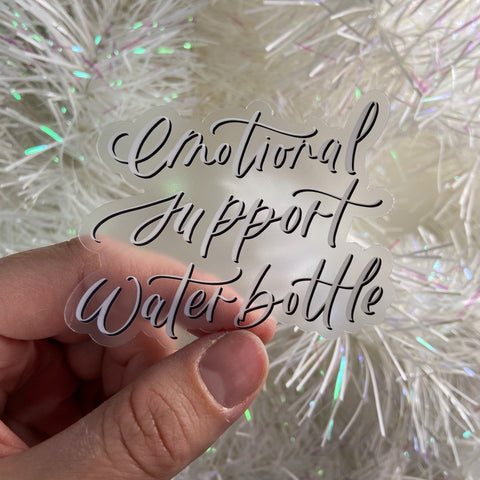 emotional
support
Water bottle